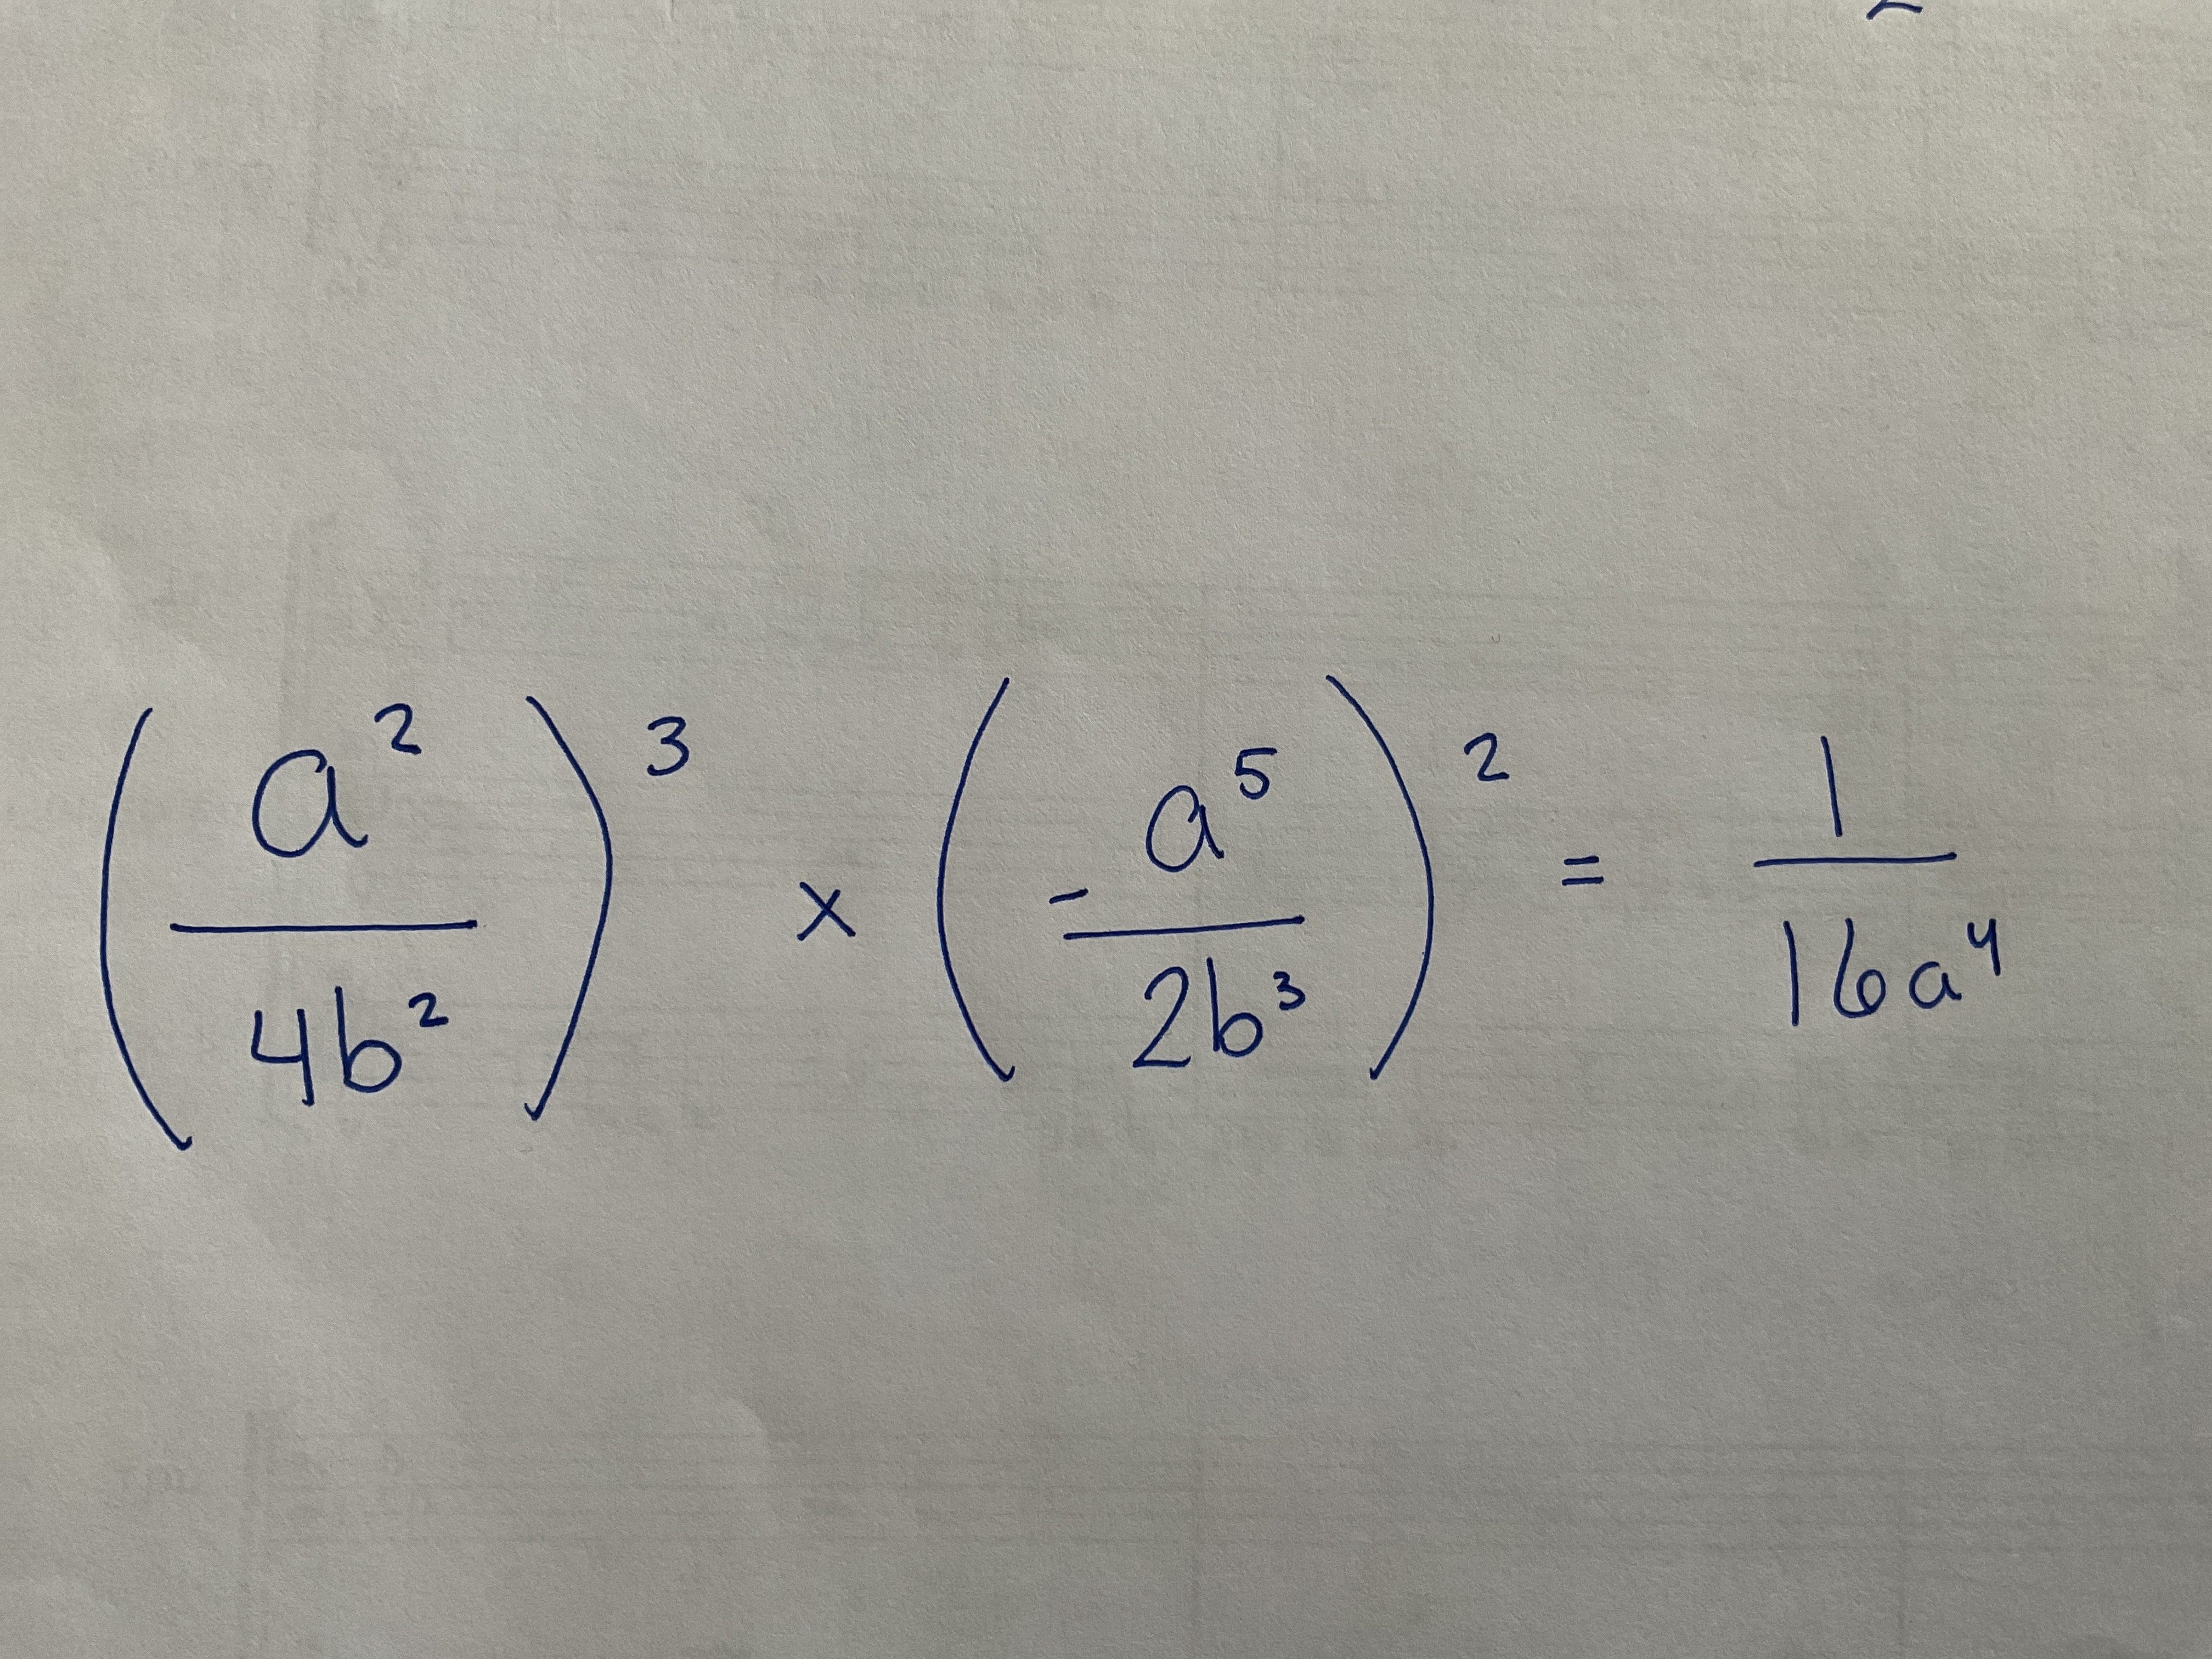 (a²/4b²)³ × (-a⁵/2b³)² = 1/16a⁴